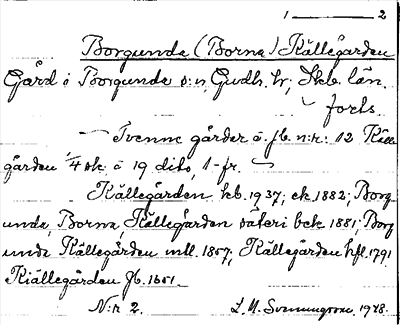 1 ——— 2
Borgunda (Borna) Källegården
Gård i Borgunda s:n, Gudh. hr; Skb. län.
forts.
— Tvenne gårder å jb. n:r: 12 Källe
gården 1/4 sk. å 19 dito, 1-fr.
Källegården kb. 1937; ek. 1882; Borg
unda, Borna, Källegården säteri bek. 1881; Borg
unda Källegården mtl. 1857; Källegården hfl. 1791
Kiällegården Jb. 1651.
N:r 2. L. M. Svenungsson 1948.